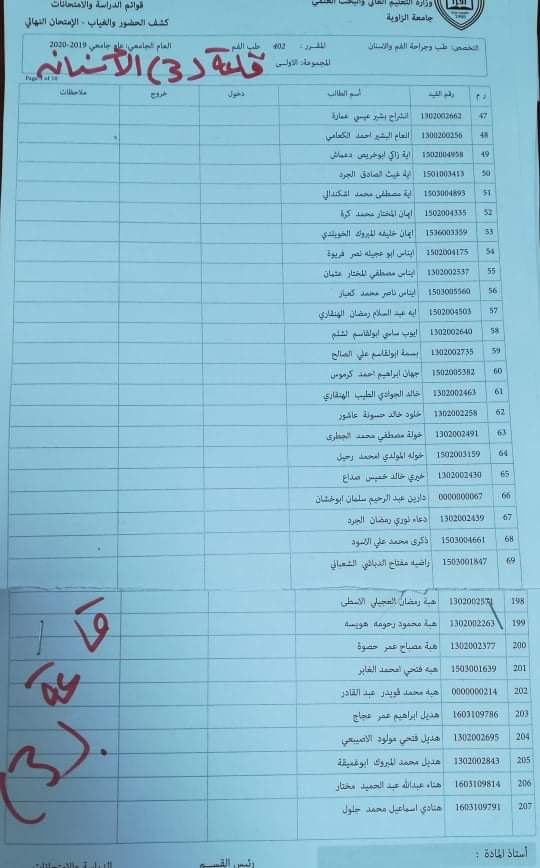 وزارة التعليم العالي والبحث العلمي
جامعة الزاوية
قوائم الدراسة والامتحانات
كشف الحضور والغياب - الإمتحان النهائي
التخصص: طب وجراحة الفم والاسنان المقرر : 402 طب الفم العام الجامعي: عام جامعي 2019-2020
المجموعة: الاولى
قاعة (3) الأسنان
ر م رقم القيد أسم الطالب دخول خروج ملاحظات
47 1302002662 انشراح بشير عيسي عمارة
48 1300200256 انعام البشير احمد الكعامي
49 1502004958 اية زاكي ابوخريص دعماش
50 1501003413 اية غيث الصادق الجرد
51 1503004893 اية مصطفى محمد اشكندالي
52 1502004335 ايمان المختار محمد كرة
53 1536003359 ايمان خليفه المبروك الخويلدي
54 1502004175 ايناس ابو عجيله نصر فريوة
55 1302002537 ايناس مصطفي المختار عثمان
56 1503005560 ايناس ناصر محمد كعبار
57 1502004503 ايه عبد السلام رمضان الهنقاري
58 1302002640 ايوب سامي ابولقاسم نشلم
59 1302002735 بسمة ابولقاسم علي الصالح
60 1502005382 جهان ابراهيم احمد كرموس
61 1302002463 خالد الجوادي الطيب الهنقاري
62 1302002258 خلود خالد حسونة عاشور
63 1302002491 خولة مصطفي محمد الجطرى
64 1502003159 خوله المولدي امحمد رحيل
65 1302002430 خيري خالد خميس صداع
66 0000000067 دارين عبد الرحيم سلمان ابوخشان
67 1302002439 دعاء نوري رمضان الجرد
68 1503004661 ذكرى محمد علي الاسود
69 1503001847 راضيه مفتاح الدباشي الشعباني
198 1302002571 هبة رمضان العجيلي الاسطى
199 1302002263 هبة محمود رحومه هويسه
200 1302002377 هبة مصباح عمر حصوة
201 1503001639 هبه فتحي امحمد الغابر
202 0000000214 هبه محمد قويدر عبد القادر
203 1603109786 هديل ابراهيم عمر عجاج
204 1302002695 هديل فتحي مولود الاصيبعي
205 1302002843 هديل محمد المبروك ابوغميقة
206 1603109814 هناء عبدالله عبد الحميد مختار
207 1603109791 هنادي اسماعيل محمد جلول
قاعة
(3)
أستاذ المادة :
رئيس القسم
الدراسة والامتحانات